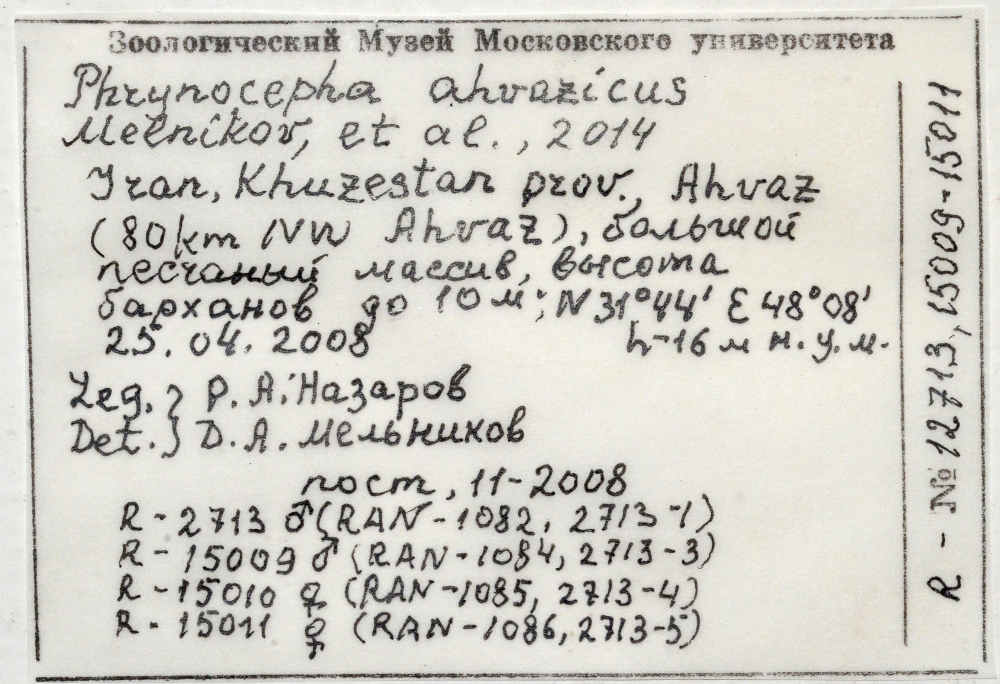 Зоологический Музей Московского университета
Phrynocepha ahvazicus
Melnikov, et al., 2014
Iran, Khuzestan prov., Ahvaz
(80km NW Ahvaz), большой
песчаный массив, высота
барханов до 10 м; N 31°44' E 48°08'
25.04.2008 h-16 м н.у.м.
Leg. } Р.А. Назаров
Det. } Д.А. Мельников
пост, 11-2008
R-2713 ♂ (RAN-1082, 2713-1)
R-15009 ♂ (RAN-1084, 2713-3)
R-15010 ♀ (RAN-1085, 2713-4)
R-15011 ♀ (RAN-1086, 2713-5)
R - № 12713, 15009-15011